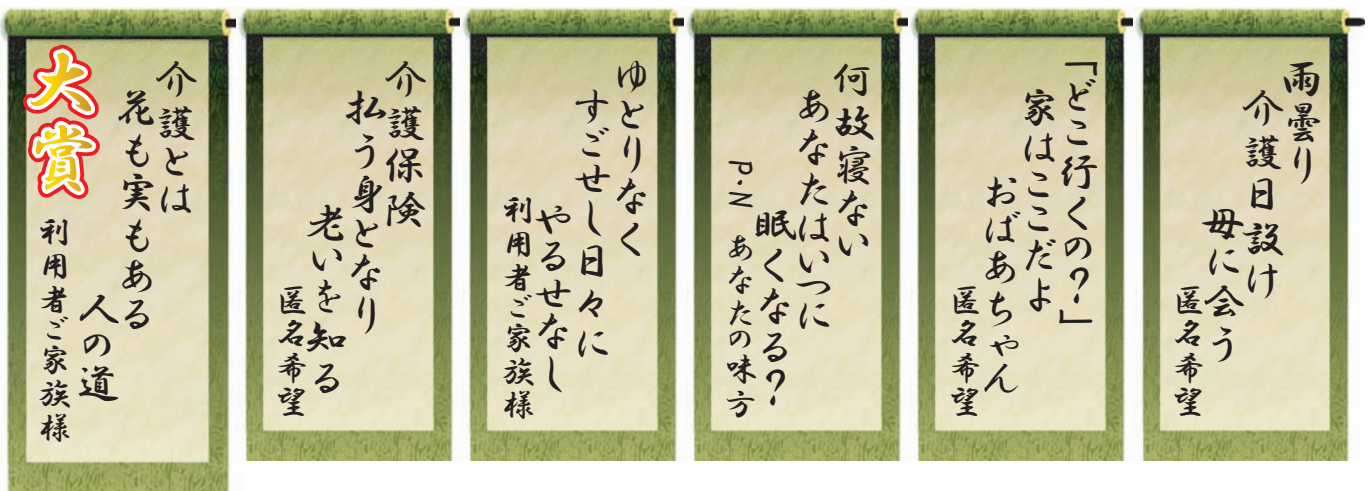 雨曇り
介護日設け
母に会う
匿名希望
「どこ行くの?」
家はここだよ
おばあちゃん
匿名希望
何故寝ない
あなたはいつに
眠くなる?
P・N あなたの味方
ゆとりなく
すごせし日々に
やるせなし
利用者ご家族様
介護保険
払う身となり
老いを知る
匿名希望
介護とは
花も実もある
人の道
利用者ご家族様
大賞